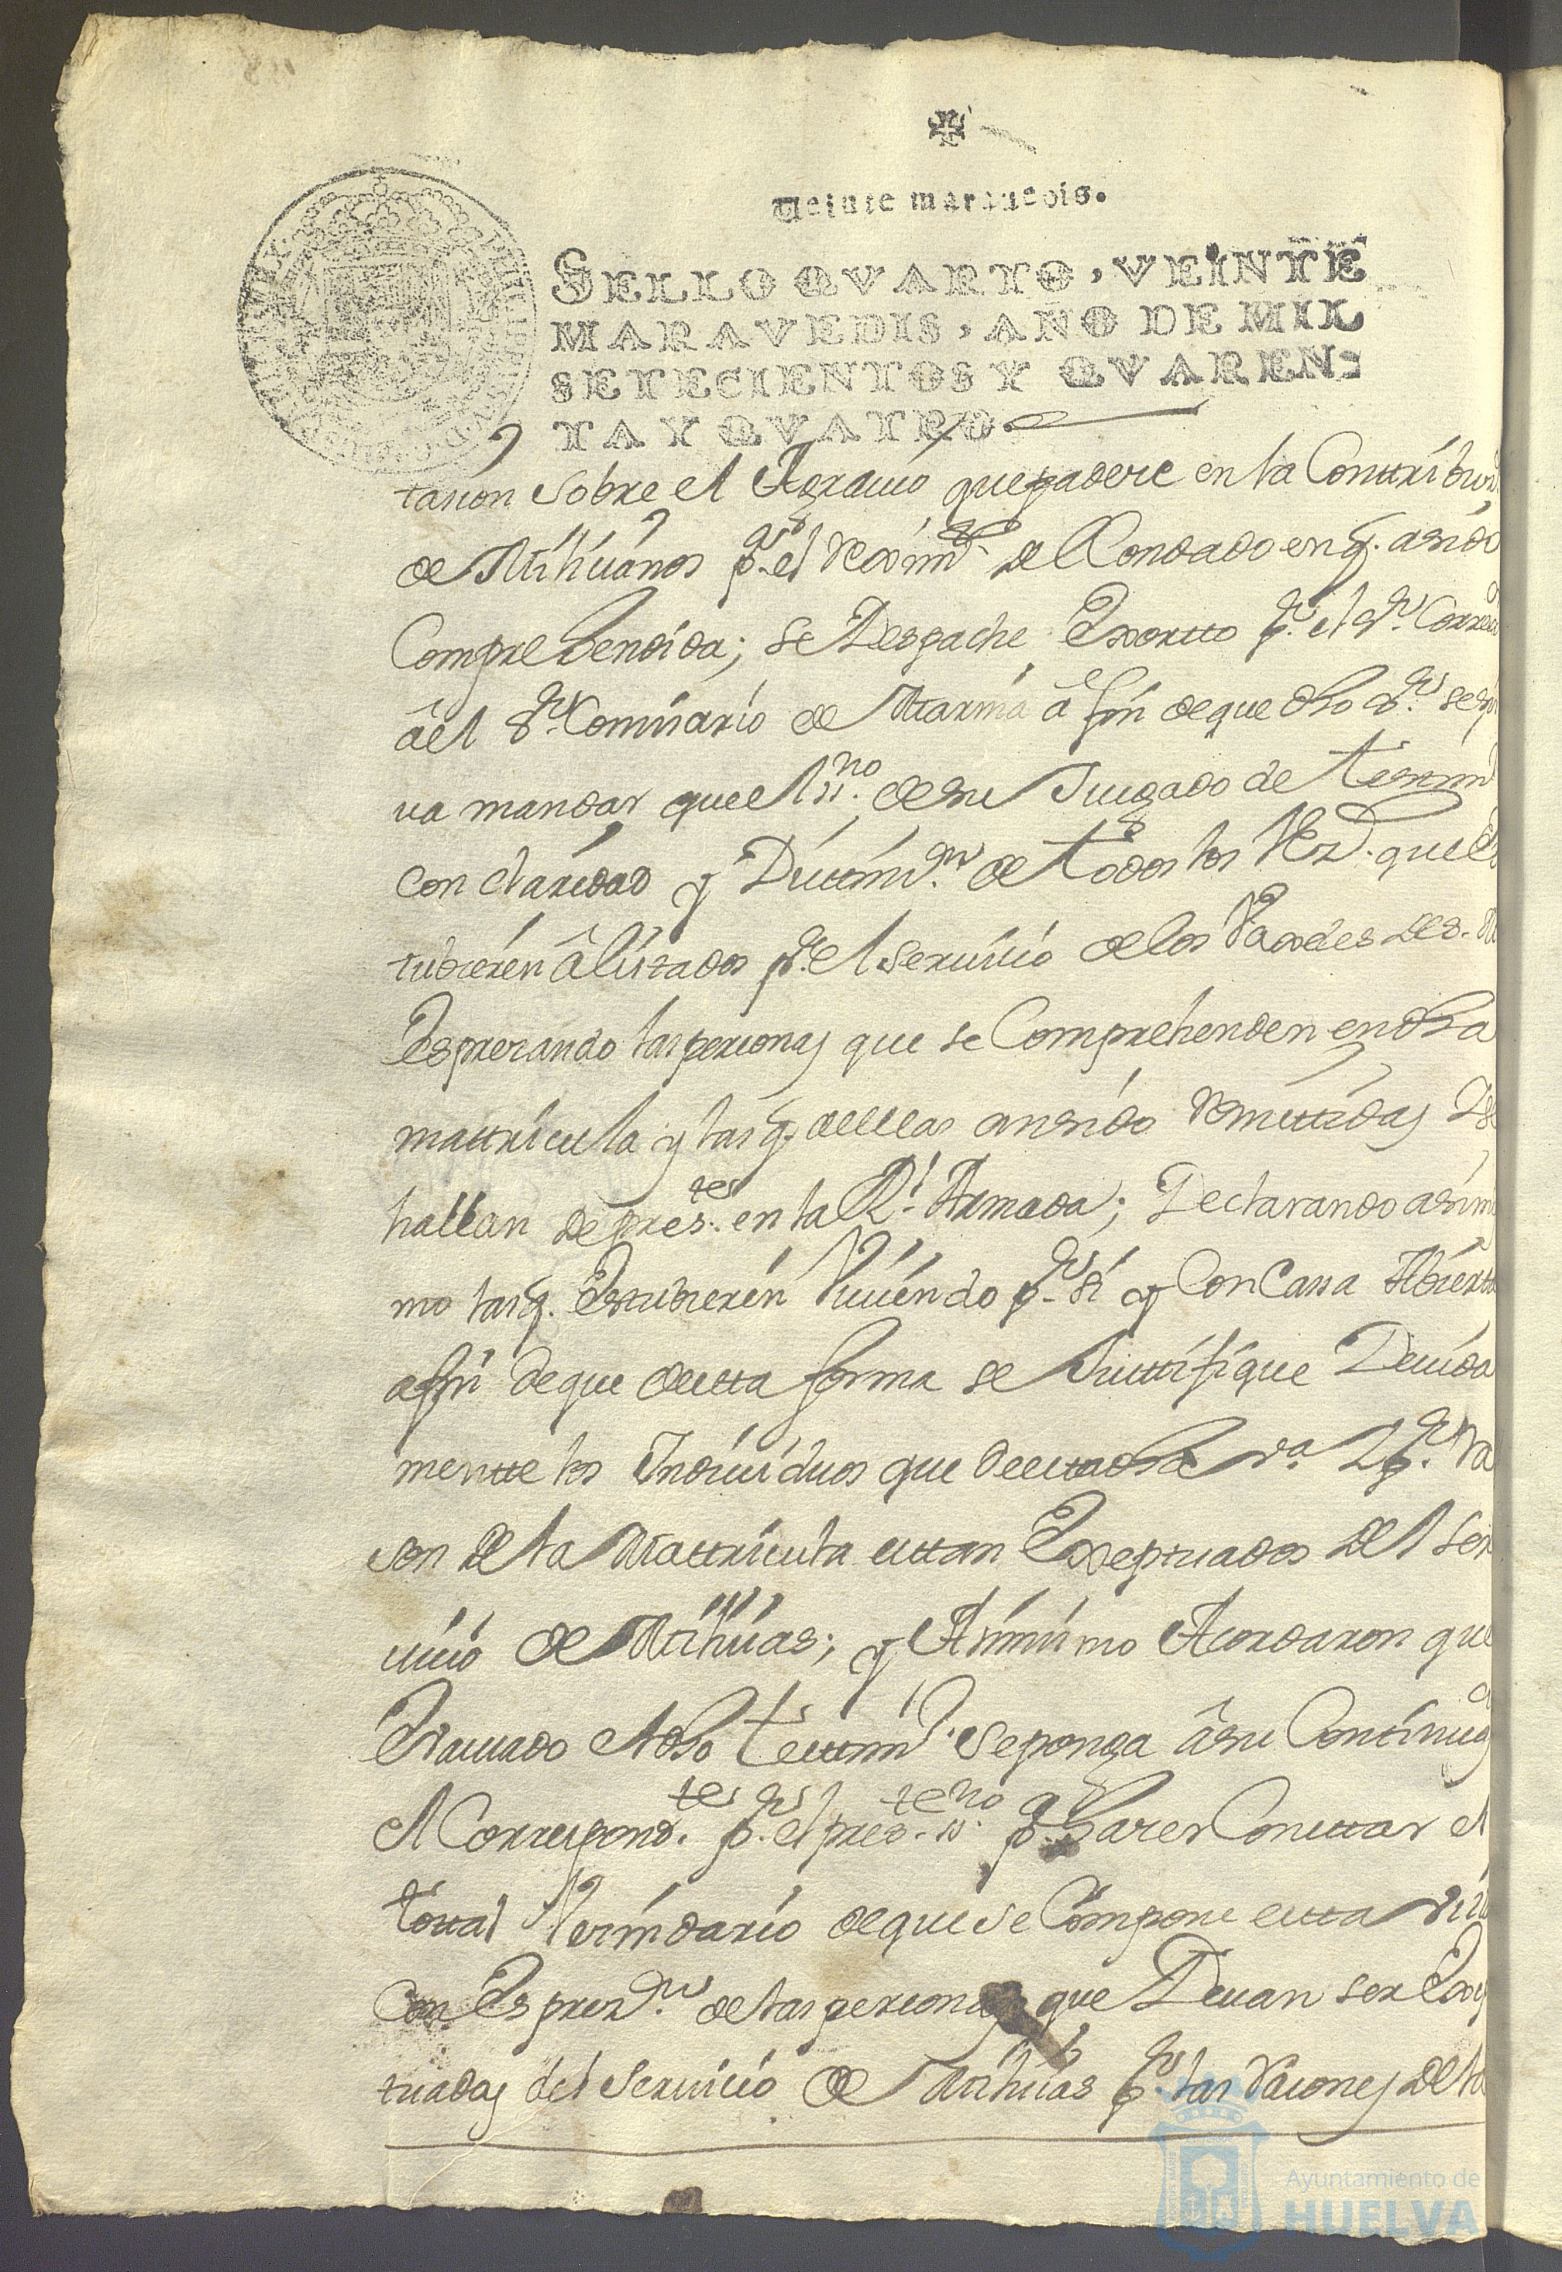 Veinte maravedis.
SELLO QVARTO, VEINTE
MARAVEDIS, AÑO DE MIL
SETECIENTOS Y QVAREN=
TA Y QVATRO.
tasion sobre el Agrauio que padece en la Conttribuz.
de Miliuanos p.r el Reximi.to de Condado en q. a sido
Comprehendida; se Despache Exortto p.r el s.r Correx.
â el s.r Comisario de Marina â fin de que dho s.r se sir
va mandar que el ss.no de su Juzgado de testim.o
con claridad y Disttinz.on de todos los Vez.s que es
tubieren âlistados p.a el seruicio de los Vaxeles de S. M.
Espresando las personas que se Comprehenden en dha
mattricula y las q. de ellas an sido Remittidas y se
hallan de pres.tes en la R.l Armada; Declarando asimis
mo las q. Estubieren Viuiendo p.r si y Con Casa Abierta
a fin de que de esta forma se Justtifique Deuida
mentte los Indiuiduos que de esta dha v.a y p.r Ra
son de la Mattricula esttan Exseptuados del ser
uicio de Milisias; y Asimismo Acordaron que
Evacuado el dho testtim.o se ponga â su Continuaz.
el Correspond.te p.r el pres.te ss.no p.a hacer Consttar el
tottal Vezindario de que se Compone estta villa
Con Espres.on de las personas que Deuan ser Exsep
tuadas del Seruicio de Milisias p.r las Rasones de la
Ayuntamiento de
HUELVA